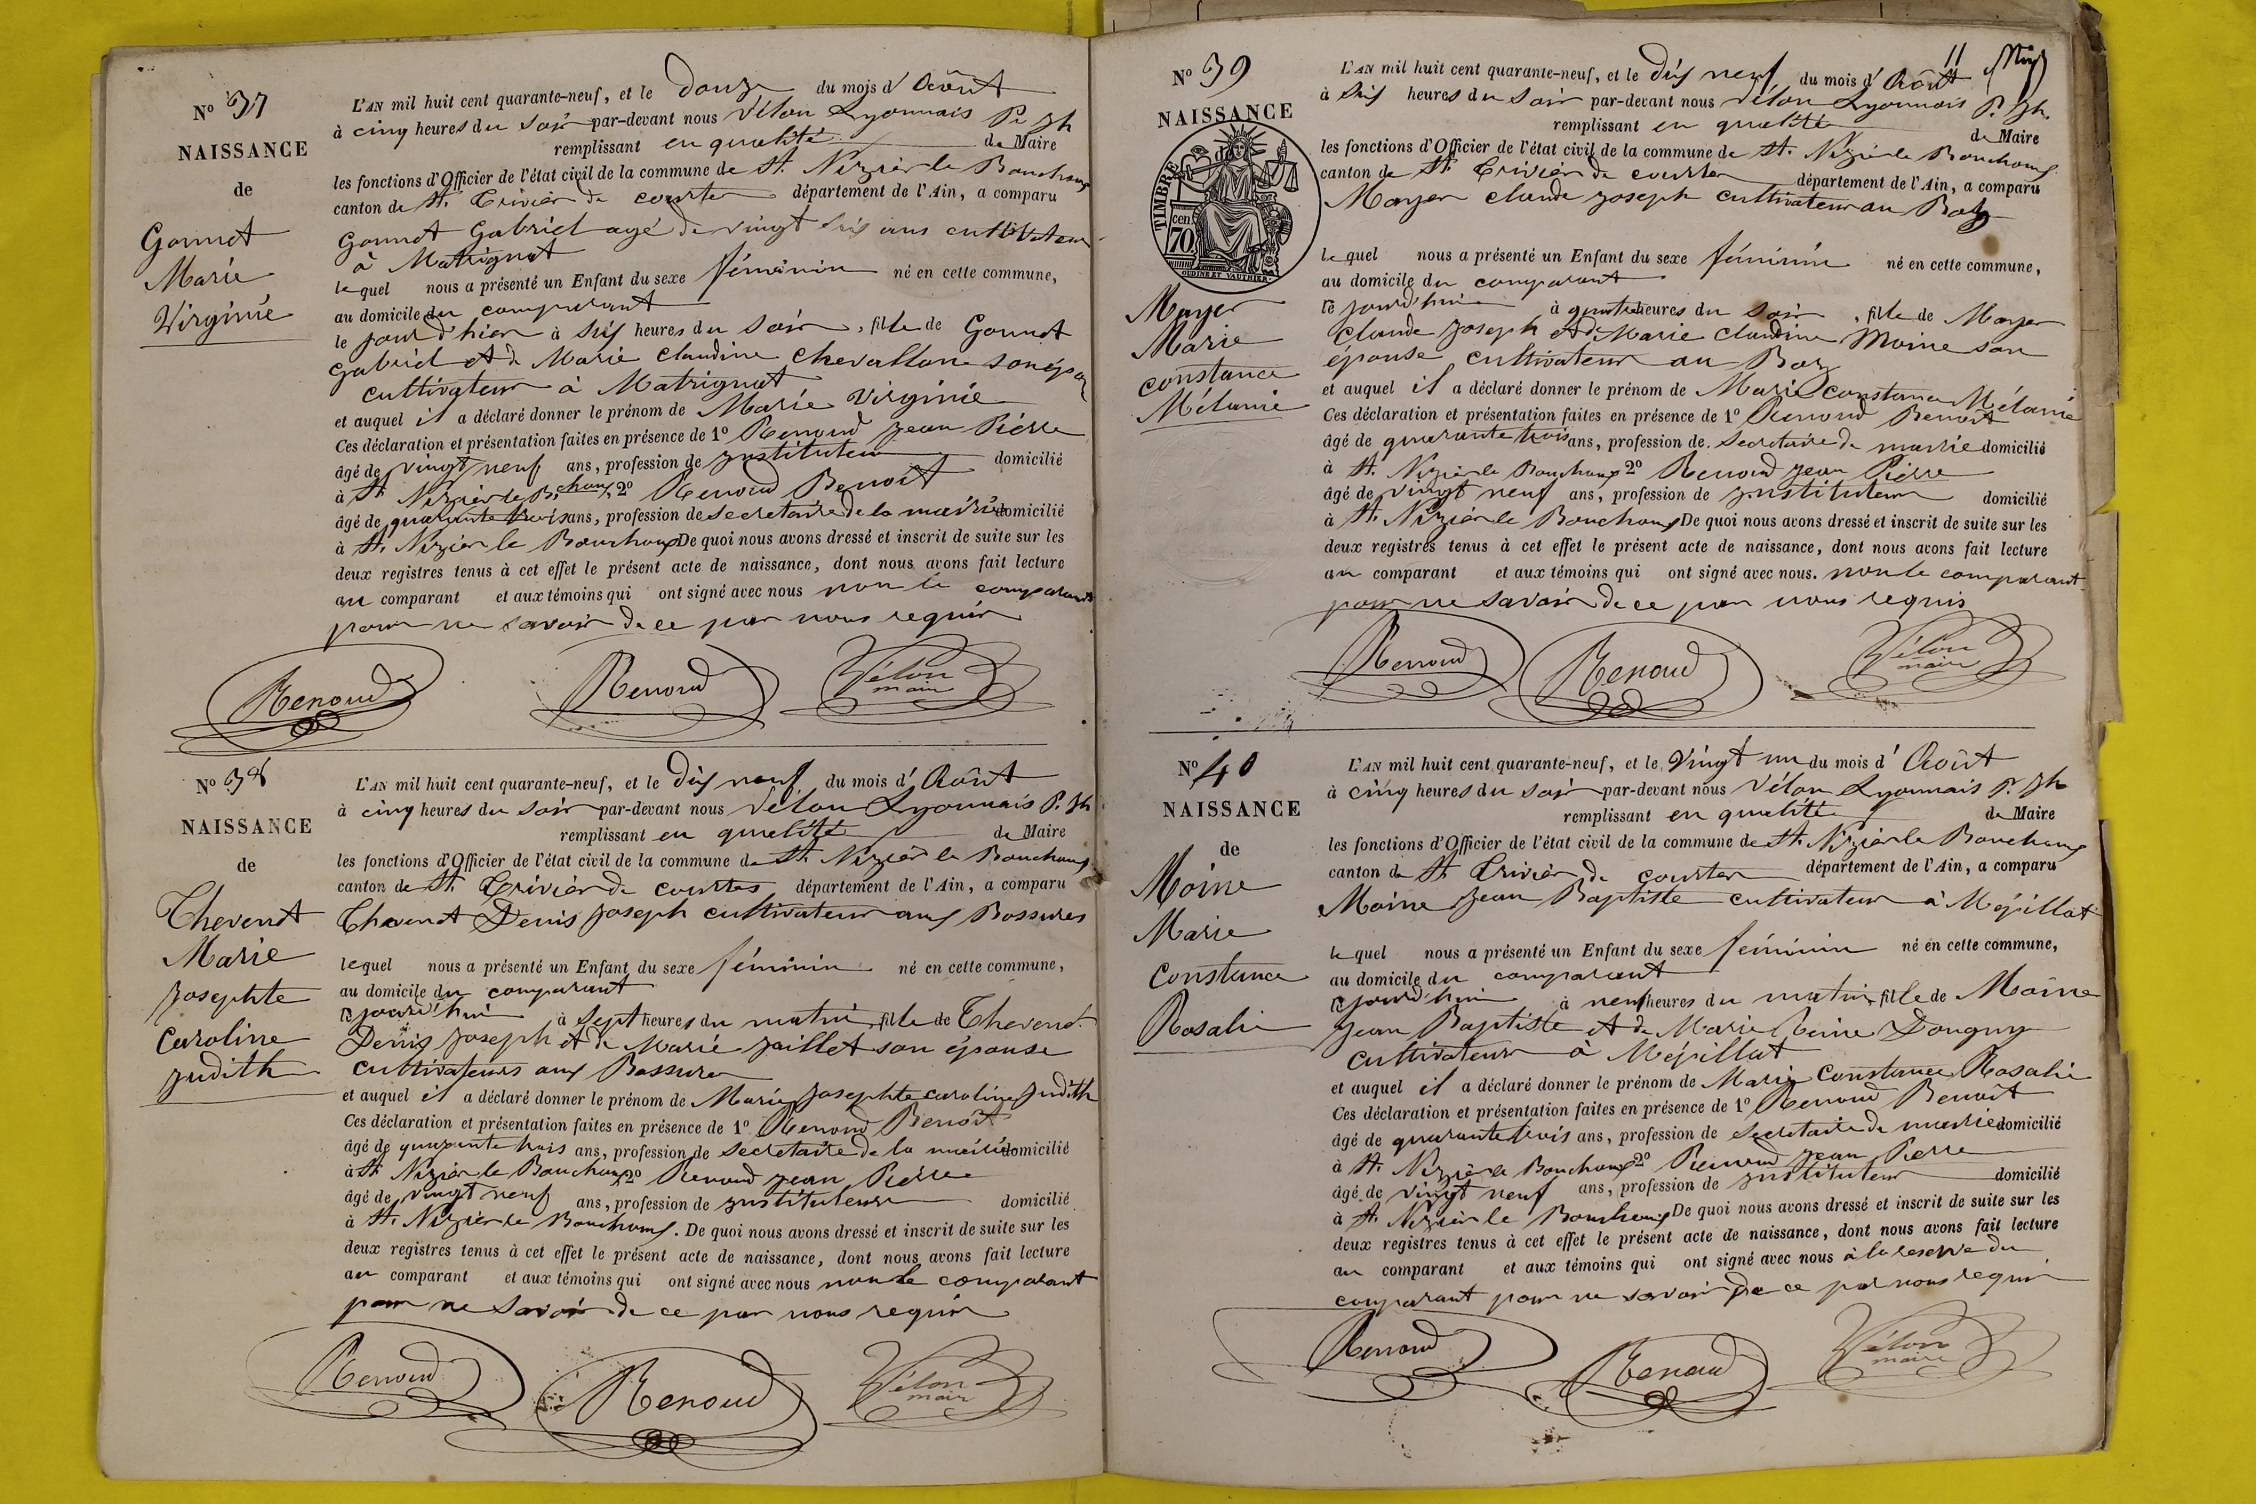 N° 37
NAISSANCE
de
Gonnot
Marie
Virginie
L'AN mil huit cent quarante-neuf, et le douze du mois d'Août
à cinq heures du soir par-devant nous Vélon Lyonnais P. Jh
remplissant en qualité de Maire
les fonctions d'Officier de l'état civil de la commune de St. Nizier le Bouchoux
canton de St. Trivier de courtes département de l'Ain, a comparu
Gonnot Gabriel agé de vingt six ans cultivateur
à Matrignat
lequel nous a présenté un Enfant du sexe féminin né en cette commune,
au domicile du comparant
le jour d'hier à six heures du soir, fille de Gonnot
Gabriel et de Marie Claudine Chevallon son épou
cultivateur à Matrignat
et auquel il a déclaré donner le prénom de Marie Virginie
Ces déclaration et présentation faites en présence de 1° Renoud Jean Pierre
âgé de vingt neuf ans, profession de instituteur domicilié
à St Nizier le Bouchoux 2° Renoud Benoit
âgé de quarante trois ans, profession de secretaire de la mairie domicilié
à St. Nizier le Bouchoux De quoi nous avons dressé et inscrit de suite sur les
deux registres tenus à cet effet le présent acte de naissance, dont nous avons fait lecture
au comparant et aux témoins qui ont signé avec nous non le comparant
pour ne savoir de ce par nous requis
Renoud Renoud Vélon
maire
N° 38
NAISSANCE
de
Thevenot
Marie
Josephte
Caroline
Judith
L'AN mil huit cent quarante-neuf, et le dix neuf du mois d'Août
à cinq heures du soir par-devant nous Vélon Lyonnais P. Jh
remplissant en qualité de Maire
les fonctions d'Officier de l'état civil de la commune de St. Nizier le Bouchoux
canton de St. Trivier de courtes département de l'Ain, a comparu
Thevenot Denis Joseph cultivateur aux Bossures
lequel nous a présenté un Enfant du sexe féminin né en cette commune,
au domicile du comparant
ce jourd'hui à sept heures du matin, fille de Thevenot
Denis Joseph et de Marie Jaillet son épouse
cultivateurs aux Bossures
et auquel il a déclaré donner le prénom de Marie Josephte Caroline Judith
Ces déclaration et présentation faites en présence de 1° Renoud Benoit
âgé de quarante trois ans, profession de secretaire de la mairie domicilié
à St Nizier le Bouchoux 2° Renoud Jean Pierre
âgé de vingt neuf ans, profession de instituteur domicilié
à St. Nizier le Bouchoux. De quoi nous avons dressé et inscrit de suite sur les
deux registres tenus à cet effet le présent acte de naissance, dont nous avons fait lecture
au comparant et aux témoins qui ont signé avec nous non le comparant
pour ne savoir de ce par nous requis
Renoud Renoud Vélon
maire
11
N° 39
NAISSANCE
de
TIMBRE
70 cen
OUDINE ET VAUTHIER
Moyer
Marie
Constance
Mélanie
L'AN mil huit cent quarante-neuf, et le dix neuf du mois d'Août
à six heures du soir par-devant nous Vélon Lyonnais P. Jh.
remplissant en qualité de Maire
les fonctions d'Officier de l'état civil de la commune de St. Nizier le Bouchoux
canton de St. Trivier de courtes département de l'Ain, a comparu
Moyer Claude Joseph cultivateur au Batz
lequel nous a présenté un Enfant du sexe féminin né en cette commune,
au domicile du comparant
ce jourd'hui à quatre heures du soir, fille de Moyer
Claude Joseph et de Marie Claudine Moine son
épouse cultivateur au Batz
et auquel il a déclaré donner le prénom de Marie Constance Mélanie
Ces déclaration et présentation faites en présence de 1° Renoud Benoit
âgé de quarante trois ans, profession de secretaire de mairie domicilié
à St. Nizier le Bouchoux 2° Renoud Jean Pierre
âgé de vingt neuf ans, profession de instituteur domicilié
à St. Nizier le Bouchoux De quoi nous avons dressé et inscrit de suite sur les
deux registres tenus à cet effet le présent acte de naissance, dont nous avons fait lecture
au comparant et aux témoins qui ont signé avec nous. non le comparant
pour ne savoir de ce par nous requis
Renoud Renoud Vélon
maire
N° 40
NAISSANCE
de
Moine
Marie
Constance
Rosalie
L'AN mil huit cent quarante-neuf, et le vingt un du mois d'Août
à cinq heures du soir par-devant nous Vélon Lyonnais P. Jh
remplissant en qualité de Maire
les fonctions d'Officier de l'état civil de la commune de St. Nizier le Bouchoux
canton de St Trivier de courtes département de l'Ain, a comparu
Moine Jean Baptiste cultivateur à Mépillat
lequel nous a présenté un Enfant du sexe féminin né en cette commune,
au domicile du comparant
ce jourd'hui à neuf heures du matin, fille de Moine
Jean Baptiste et de Marie Reine Dougny
cultivateur à Mépillat
et auquel il a déclaré donner le prénom de Marie Constance Rosalie
Ces déclaration et présentation faites en présence de 1° Renoud Benoit
âgé de quarante trois ans, profession de secretaire de mairie domicilié
à St. Nizier le Bouchoux 2° Renoud Jean Pierre
âgé de vingt neuf ans, profession de instituteur domicilié
à St. Nizier le Bouchoux De quoi nous avons dressé et inscrit de suite sur les
deux registres tenus à cet effet le présent acte de naissance, dont nous avons fait lecture
au comparant et aux témoins qui ont signé avec nous à la reserve du
comparant pour ne savoir de ce par nous requis
Renoud Renoud Vélon
maire